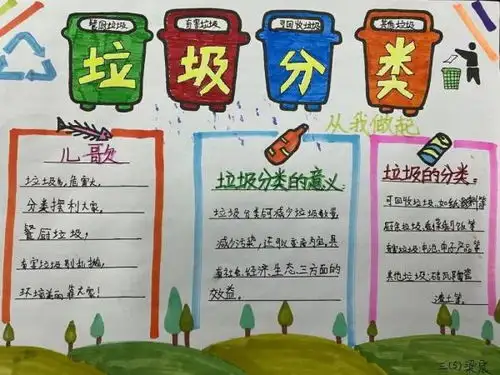 餐厨垃圾
有害垃圾
可回收垃圾
其他垃圾
垃圾分类
从我做起
儿歌
垃圾多,危害大,
分类摆利大家。
餐厨垃圾,
有害垃圾别乱抛,
环境美丽靠大家!
垃圾分类的意义:
垃圾分类可减少垃圾数量,
减少污染,还可
具
有社会、经济、生态、三方面的
效益。
垃圾的分类:
可回收垃圾:如纸
厨余垃圾:
有害垃圾:电池、电子产品等
其他垃圾:
渣土等。
三(5)梁宸